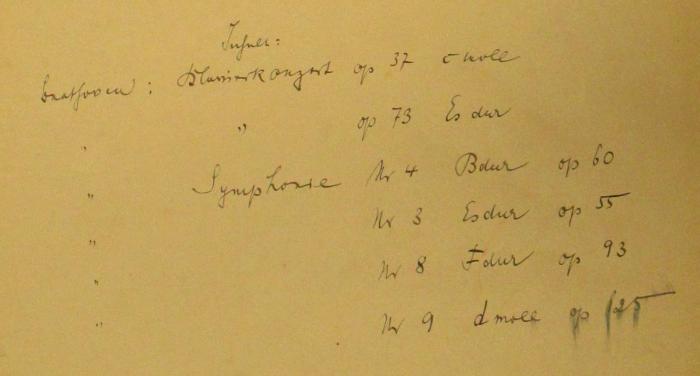 Inhalt:
Beethoven: Klavierkonzert op 37 c moll
" " op 73 Es dur
" Symphonie Nr 4 B dur op 60
" Nr 3 Es dur op 55
" Nr 8 F dur op 93
" Nr 9 d moll op 125